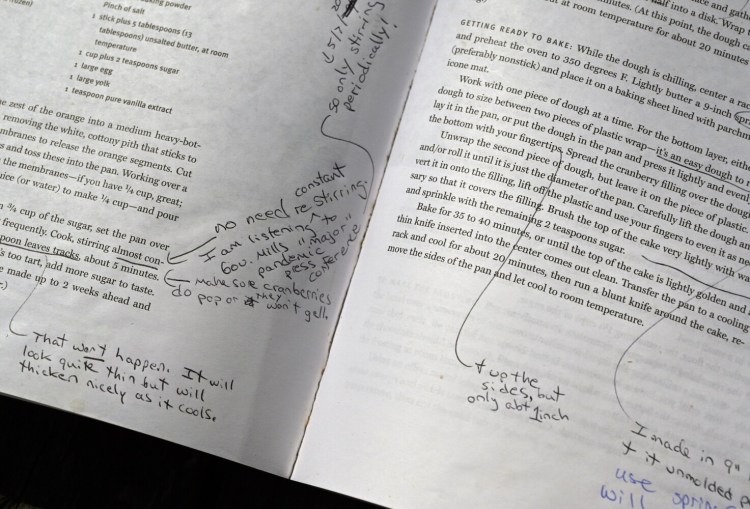 rozen)
king powder
Pinch of salt
1 stick plus 5 tablespoons (13
tablespoons) unsalted butter, at room
temperature
1 cup plus 2 teaspoons sugar
1 large egg
1 large yolk
1 teaspoon pure vanilla extract
e zest of the orange into a medium heavy-bot-
removing the white, cottony pith that sticks to
mbranes to release the orange segments. Cut
s and toss these into the pan. Working over a
the membranes—if you have ¼ cup, great;
uice (or water) to make ¼ cup—and pour
n ¾ cup of the sugar, set the pan over
frequently. Cook, stirring almost con-
poon leaves tracks, about 5 minutes.
's too tart, add more sugar to taste.
e made up to 2 weeks ahead and
.)
so only stirring
periodically!
no need re constant
stirring
I am listening to
Gov. Mills "major"
pandemic
press conference
make sure cranberries
do pop or they won't gell.
That won't happen. It will
look quite thin but will
thicken nicely as it cools.
half into a disk. Wrap t
nutes. (At this point, the dough ca
at room temperature for about 20 minutes
GETTING READY TO BAKE: While the dough is chilling, center a rac
and preheat the oven to 350 degrees F. Lightly butter a 9-inch spr
(preferably nonstick) and place it on a baking sheet lined with parchm
icone mat.
Work with one piece of dough at a time. For the bottom layer, eithe
dough to size between two pieces of plastic wrap—it's an easy dough to
lay it in the pan, or put the dough in the pan and press it lightly and even
the bottom with your fingertips. Spread the cranberry filling over the doug
Unwrap the second piece of dough, but leave it on the piece of plastic
and/or roll it until it is just the diameter of the pan. Carefully lift the dough an
vert it in onto the filling, lift off the plastic and use your fingers to even it as ne
sary so that it covers the filling. Brush the top of the cake very lightly with
and sprinkle with the remaining 2 teaspoons sugar.
Bake for 35 to 40 minutes, or until the top of the cake is lightly golden and a
thin knife inserted into the center comes out clean. Transfer the pan to a cooling
rack and cool for about 20 minutes, then run a blunt knife around the cake, re-
move the sides of the pan and let cool to room temperature.
+ up the
sides, but
only abt 1 inch
I made in 9"
+ it unmolded
use spring
will